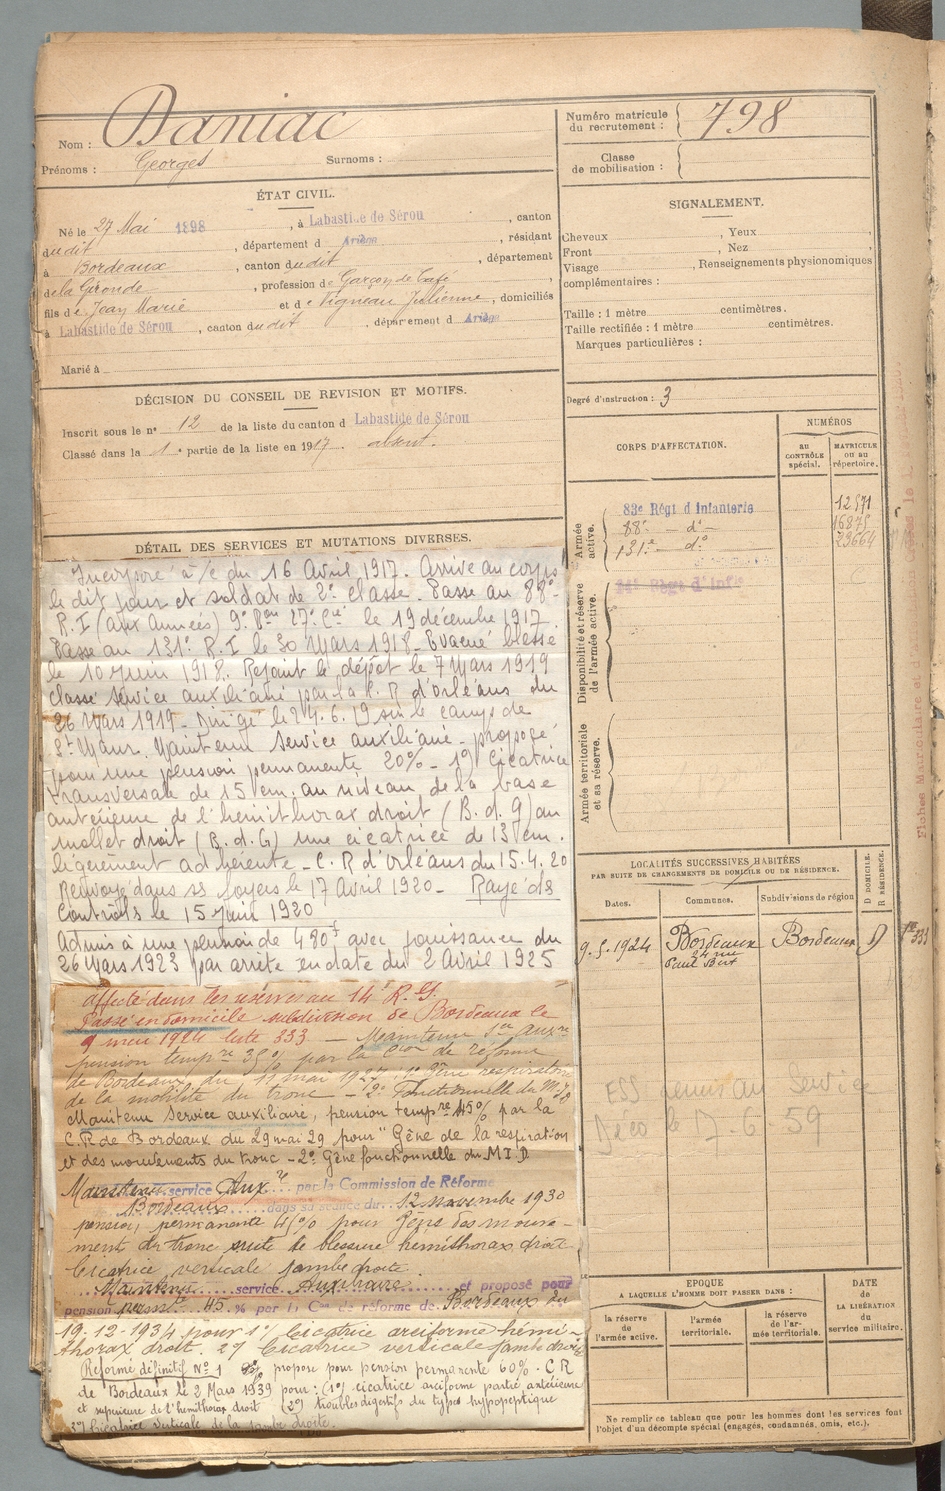 Nom : Daniac
Prénoms : Georges Surnoms :
Numéro matricule du recrutement : 798
Classe de mobilisation :
ÉTAT CIVIL.
Né le 27 Mai 1898, à Labastide de Sérou, canton
dudit, département d Ariège, résidant
à Bordeaux, canton dudit, département
de la Gironde, profession de Garçon de Café
fils de Jean Marie et de Vigneau Julienne, domiciliés
à Labastide de Sérou, canton dudit, département d Ariège
Marié à
SIGNALEMENT.
Cheveux , Yeux ,
Front , Nez ,
Visage , Renseignements physionomiques
complémentaires :
Taille : 1 mètre centimètres.
Taille rectifiée : 1 mètre centimètres.
Marques particulières :
DÉCISION DU CONSEIL DE REVISION ET MOTIFS.
Inscrit sous le n° 12 de la liste du canton d Labastide de Sérou
Classé dans la 1e partie de la liste en 1917. absent.
Degré d'instruction : 3
CORPS D'AFFECTATION.
NUMÉROS
AU CONTRÔLE spécial.
MATRICULE OU AU répertoire.
Armée active.
83e Régt d Infanterie 12571
88e — d° — 16875
131e — d° 23664
Disponibilité et réserve de l'armée active.
14e Régt d'Infie
Armée territoriale et sa réserve.
DÉTAIL DES SERVICES ET MUTATIONS DIVERSES.
Incorporé à /c du 16 Avril 1917. Arrivé au corps
le dit jour et soldat de 2e classe. Passé au 88e
R.I (aux Armées) 9e Bon 27e Cie le 19 décembre 1917.
Passé au 131e R.I le 30 Mars 1918. Evacué blessé
le 10 Juin 1918. Rejoint le dépôt le 7 Mars 1919
Classé Service auxiliaire par la C. R d'Orléans du
26 Mars 1919. Dirigé le 24.6.19 sur le camp de
St Maur. Maintenu Service auxiliaire. proposé
pour une pension permanente 20% - 1°) Cicatrice
transversale de 15 cm. au niveau de la base
antérieure de l'hémithorax droit (B. d. G) au
mollet droit (B. d. G) une cicatrice de 13 cm.
légèrement adhérente - C. R d'Orléans du 15.4.20
Renvoyé dans ss foyers le 17 Avril 1920 - Rayé des
Contrôles le 15 Juin 1920
Admis à une pension de 480f avec jouissance du
26 Mars 1923 par arrêté en date du 2 Avril 1925
affecté dans les réserves au 14e R.I.
Passé en domicile subdivision de Bordeaux le
9 mai 1924 liste 333 — Maintenu Sce auxre
pension tempre 35% par la Con de réforme
de Bordeaux du mai 1927 : 1° Gêne respiration
de la mobilité du tronc - 2° Fonctionnelle du M.I.D
Maintenu Service auxiliaire, pension tempre 45% par la
C.R de Bordeaux du 29 mai 29 pour "Gêne de la respiration
et des mouvements du tronc - 2° Gêne fonctionnelle du M I D
Maintenu service Auxre par la Commission de Réforme
Bordeaux dans sa séance du 12 novembre 1930
pension permanente 45% pour gêne des mouve-
ment du tronc suite de blessure hémithorax droit
Cicatrice verticale jambe droite.
Maintenu service Auxiliaire et proposé pour
pension permte 45 % par la Con de réforme de Bordeaux du
19-12-1934 pour 1°/ Cicatrice arciforme hémi-
thorax droit. 2°/ Cicatrice verticale jambe droite
Réformé définitif N° 1 proposé pour pension permanente 60% . C R
de Bordeaux le 2 Mars 1939 pour : (1°) cicatrice arciforme partie antérieure
et supérieure de l'hémithorax droit (2°) troubles digestifs du type hypopeptique
3°/ Cicatrice verticale de la jambe droite.
LOCALITÉS SUCCESSIVES HABITÉES
PAR SUITE DE CHANGEMENTS DE DOMICILE OU DE RÉSIDENCE.
Dates. Communes. Subdivisions de région D DOMICILE. R RÉSIDENCE.
9.5.1924 Bordeaux Bordeaux D
24 rue
Paul Bert
Déco le 7.6.59
ÉPOQUE
A LAQUELLE L'HOMME DOIT PASSER DANS :
la réserve de l'armée active.
l'armée territoriale.
la réserve de l'armée territoriale.
DATE de LA LIBÉRATION du service militaire.
Ne remplir ce tableau que pour les hommes dont les services font
l'objet d'un décompte spécial (engagés, condamnés, omis, etc.).